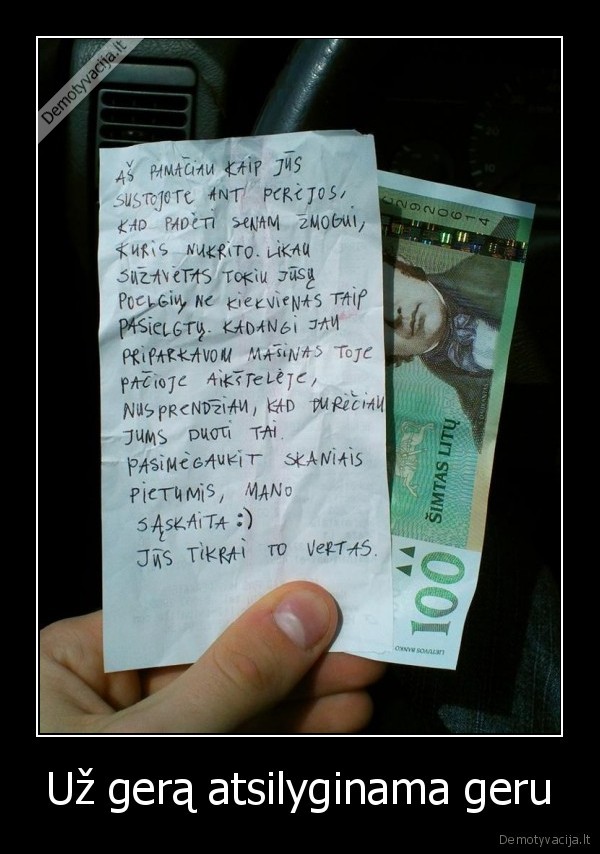 Demotyvacija.lt
AŠ PAMAČIAU KAIP JŪS
SUSTOJOTE ANT PERĖJOS,
KAD PADĖTI SENAM ŽMOGUI,
KURIS NUKRITO. LIKAU
SUŽAVĖTAS TOKIU JŪSŲ
POELGIU, NE KIEKVIENAS TAIP
PASIELGTŲ. KADANGI JAU
PRIPARKAVOM MAŠINAS TOJE
PAČIOJE AIKŠTELĖJE,
NUSPRENDŽIAU, KAD TURĖČIAU
JUMS DUOTI TAI.
PASIMĖGAUKIT SKANIAIS
PIETUMIS, MANO
SĄSKAITA :)
JŪS TIKRAI TO VERTAS.
2920614
ŠIMTAS LITŲ
100
LIETUVOS BANKO
Už gerą atsilyginama geru
Demotyvacija.lt